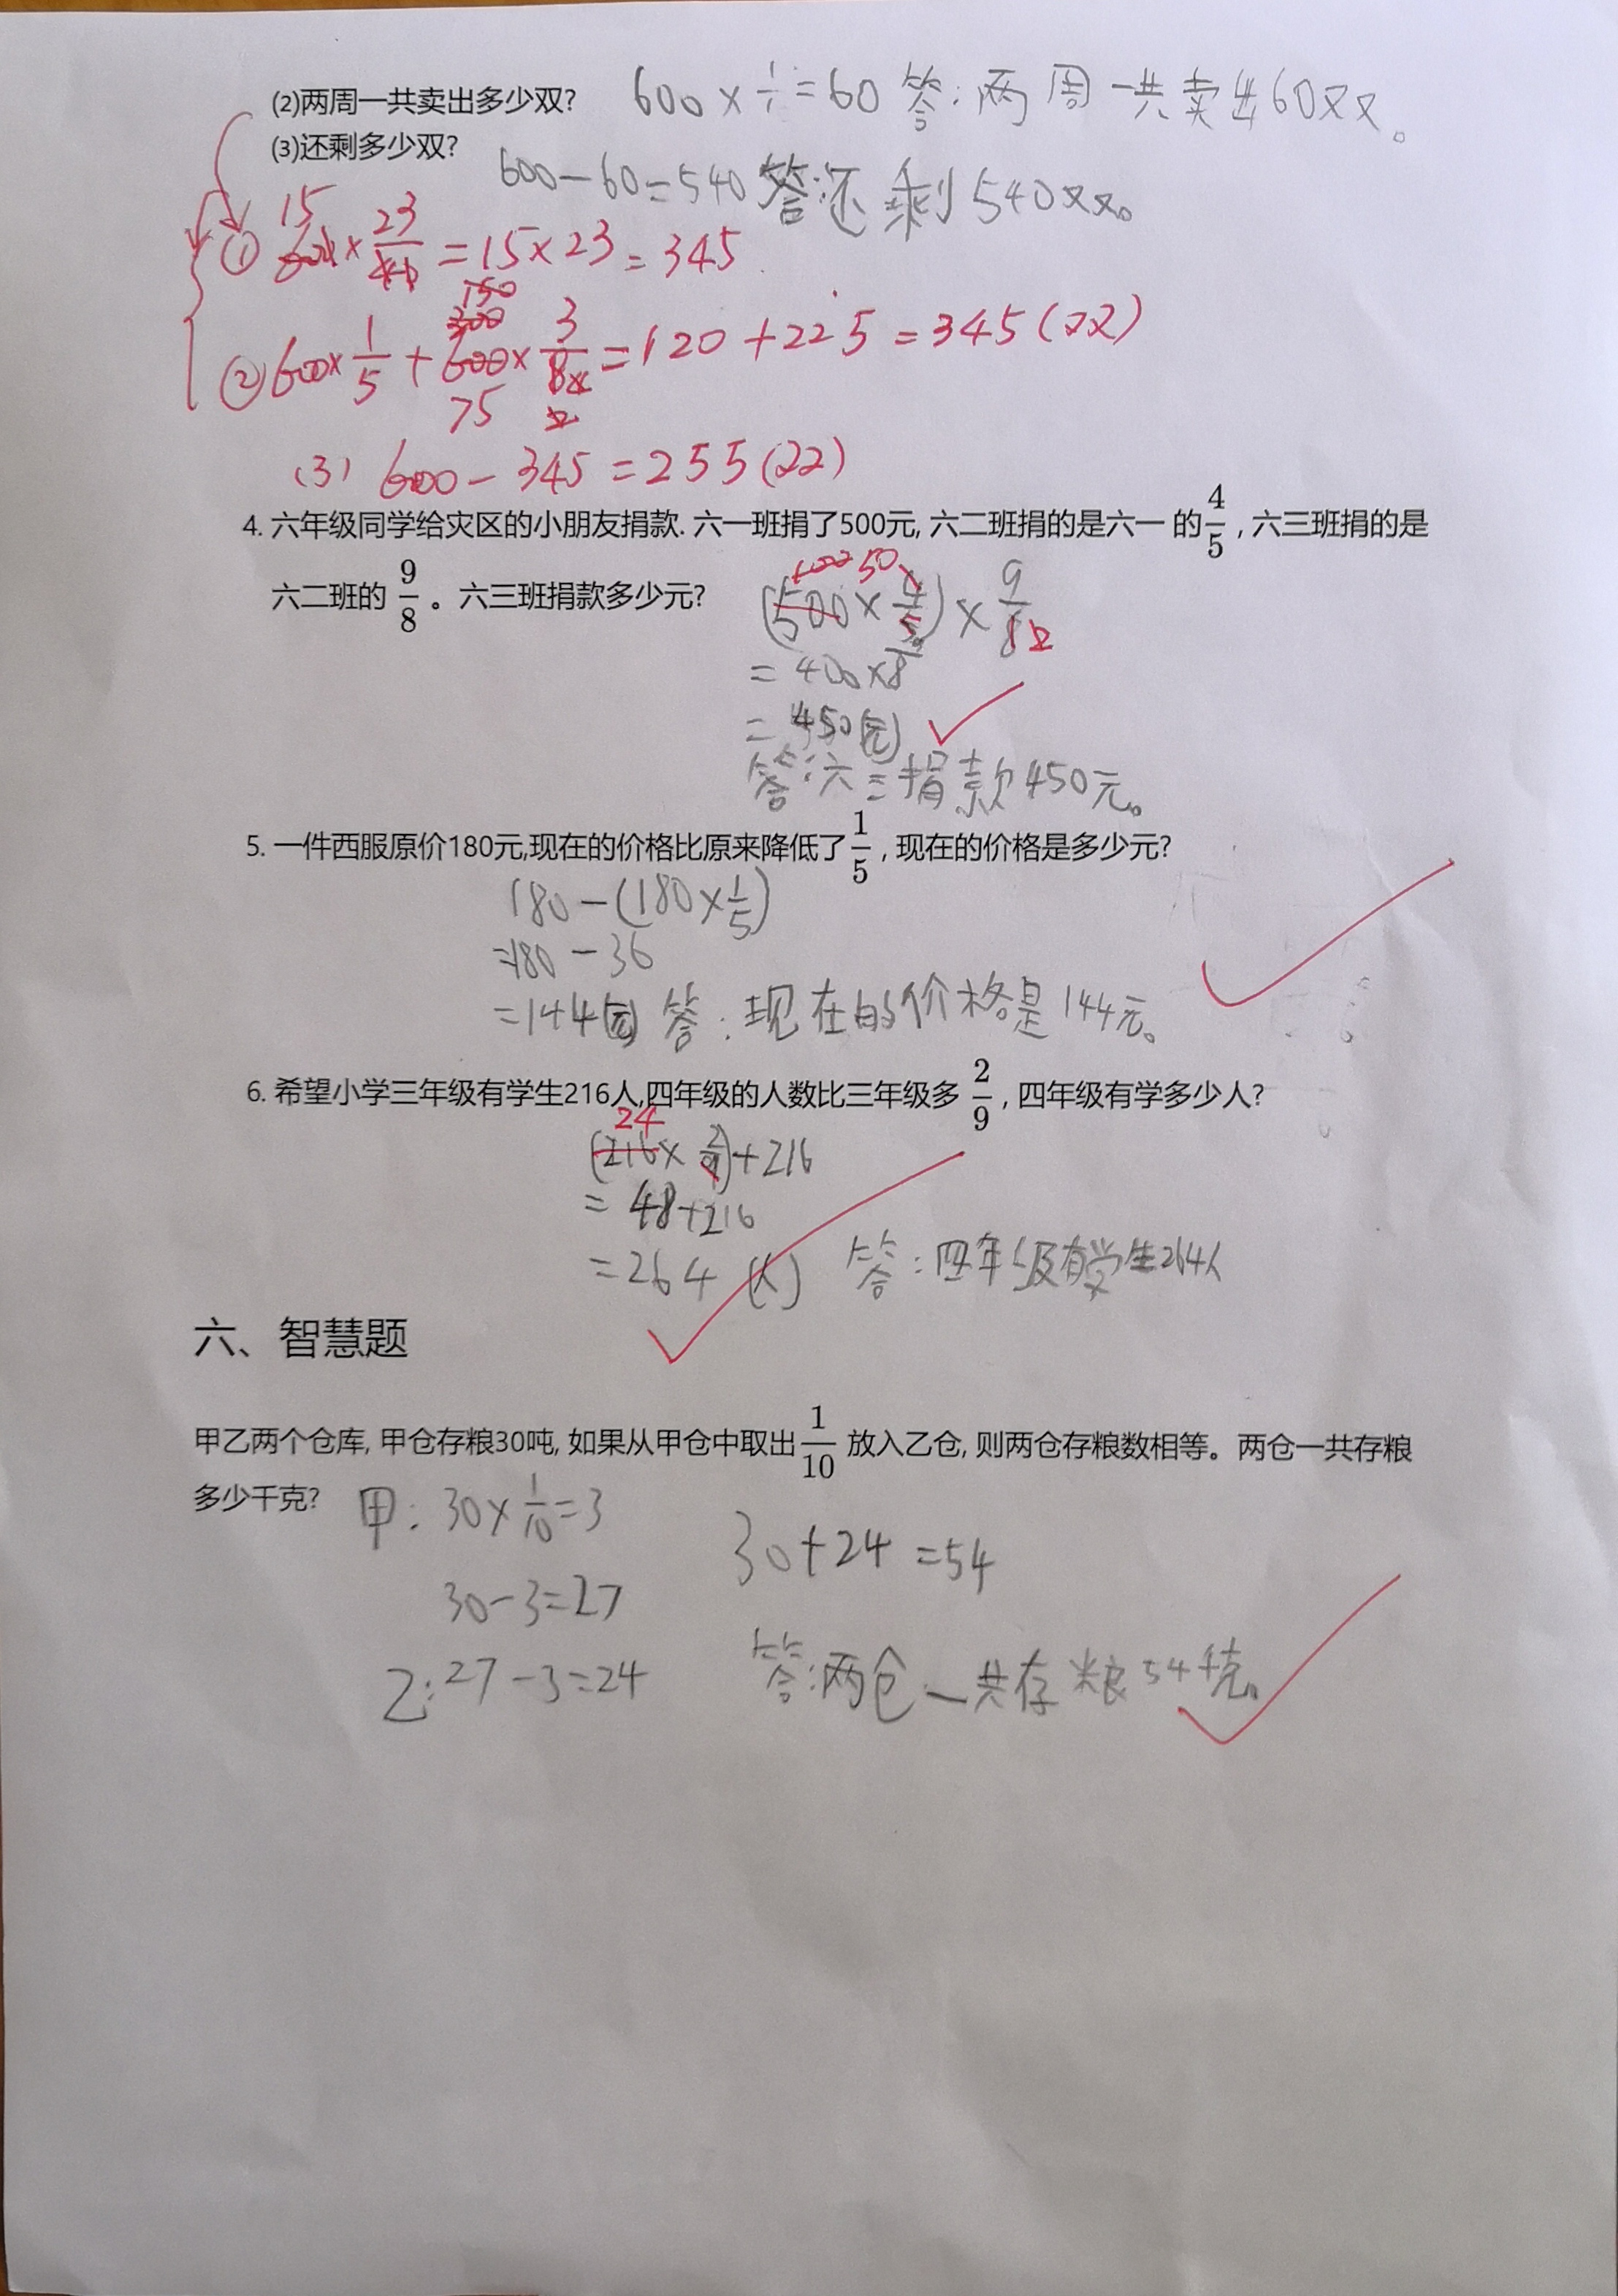 (2)两周一共卖出多少双? 600×1/ =60 答:两周一共卖出60双。
(3)还剩多少双? 600-60=540 答:还剩540双。
15
① 600×23/40=15×23=345
150
300
②600×1/5+600×3/8=120+225=345(双)
75
(3) 600-345=255(双)
4. 六年级同学给灾区的小朋友捐款. 六一班捐了500元, 六二班捐的是六一 的4/5, 六三班捐的是
六二班的 9/8 。六三班捐款多少元?
100 50
(500×4/5)×9/8
=400×9/8
=450(元)
答:六三捐款450元。
5. 一件西服原价180元,现在的价格比原来降低了1/5, 现在的价格是多少元?
180-(180×1/5)
=180-36
=144(元) 答:现在的价格是144元。
6. 希望小学三年级有学生216人,四年级的人数比三年级多 2/9, 四年级有学多少人?
24
(216×2/9)+216
=48+216
=264(人) 答:四年级有学生264人
六、智慧题
甲乙两个仓库, 甲仓存粮30吨, 如果从甲仓中取出1/10 放入乙仓, 则两仓存粮数相等。两仓一共存粮
多少千克?
甲:30×1/10=3
30-3=27
乙:27-3=24
30+24=54
答:两仓一共存粮54千克。